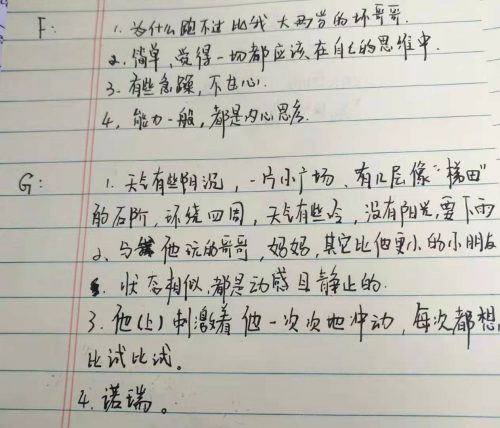 F: 1. 为什么跑不过比我大两岁的坏哥哥.
2. 简单, 觉得一切都应该在自己的思维中.
3. 有些急躁, 不甘心.
4. 能力一般, 都是内心思考.
G: 1. 天气有些阴沉, 一片小广场, 有几层像"梯田"
的石阶, 环绕四周, 天气有些冷, 没有阳光, 要下雨
2. 与 他玩的哥哥, 妈妈, 其它比他更小的小朋友
状态相似, 都是动感且静止的.
3. 他(上)刺激着他一次次地冲动, 每次都想
比试比试。
4. 诺瑞。